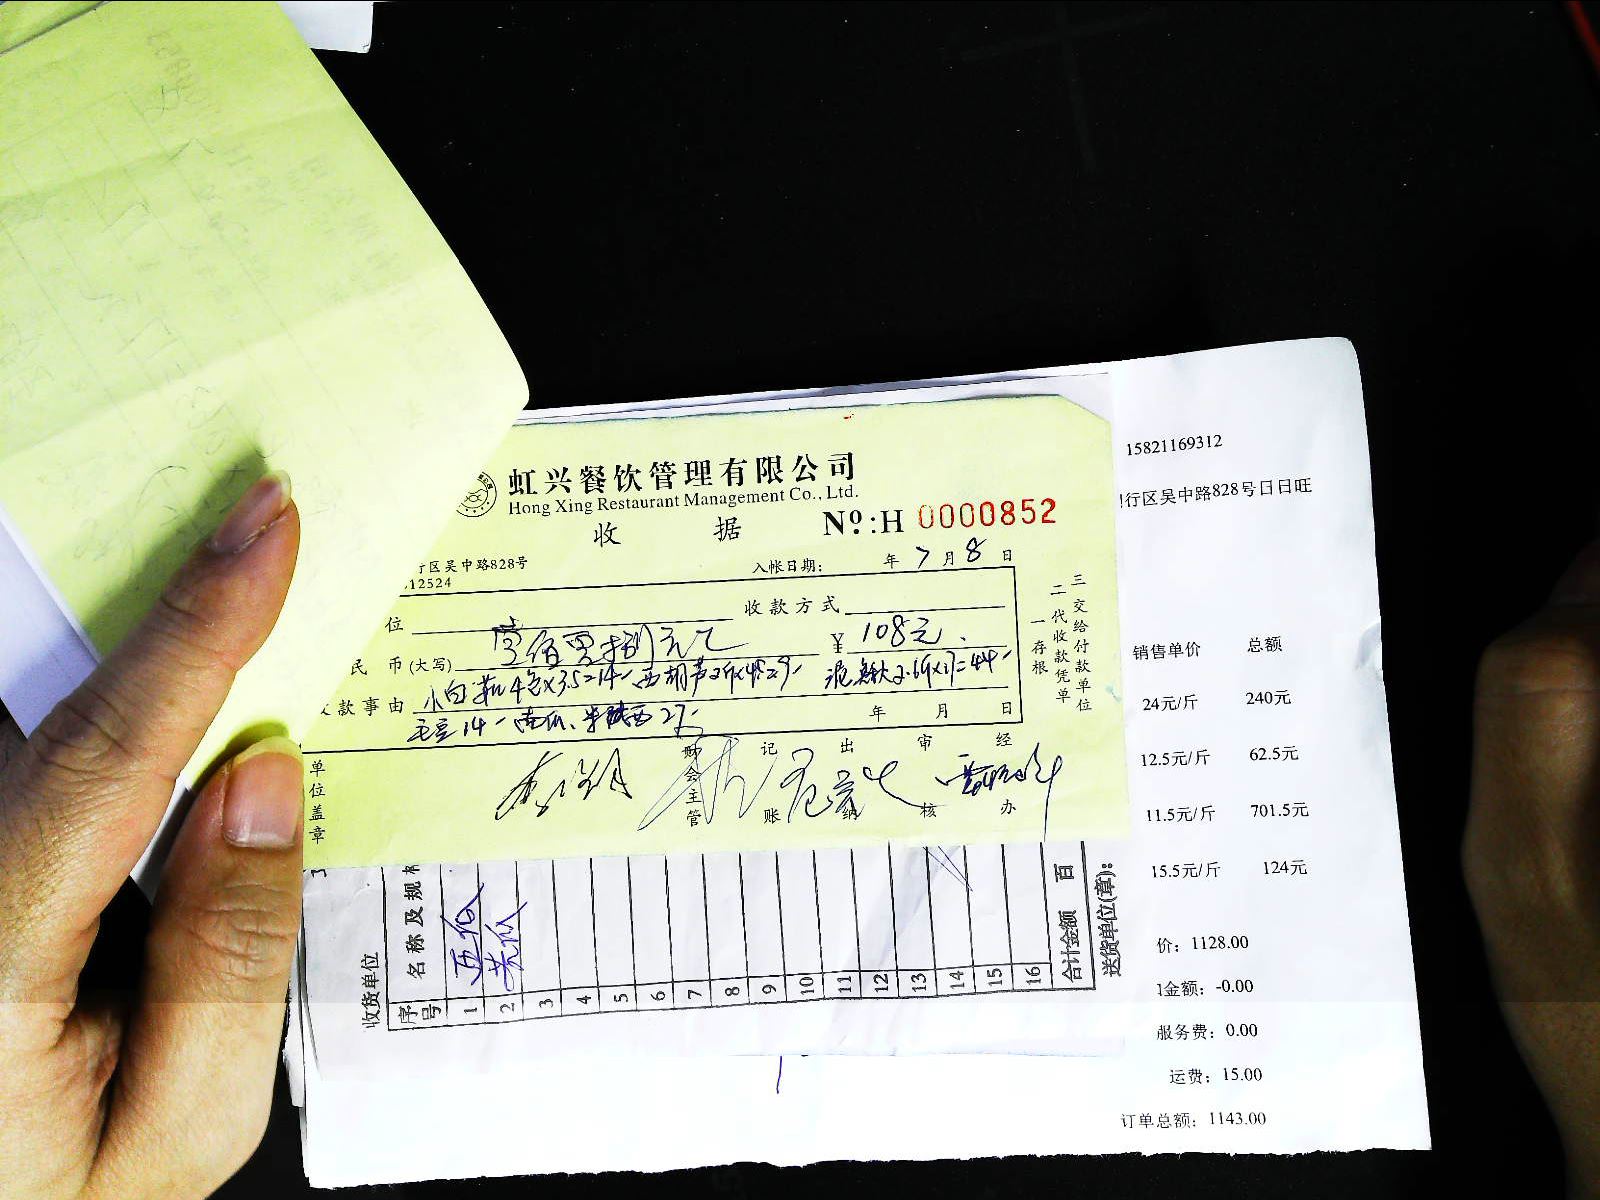 虹兴餐饮管理有限公司
Hong Xing Restaurant Management Co., Ltd.
收 据 Nº:H 0000852
行区吴中路828号
12524
入帐日期: 年 7 月 8 日
位 收款方式
民 币(大写) ¥ 108元
款事由 小白菜 4包×3.5=14-
毛豆14- 南瓜、
年 月 日
一存根
二代收款凭单
三交给付款单位
单位盖章
财会主管 记账 出纳 审核 经办
收货单位
序号 名称及规格
1
2
3
4
5
6
7
8
9
10
11
12
13
14
15
16
合计金额 百
送货单位(章):
15821169312
行区吴中路828号日日旺
销售单价 总额
24元/斤 240元
12.5元/斤 62.5元
11.5元/斤 701.5元
15.5元/斤 124元
价: 1128.00
金额: -0.00
服务费: 0.00
运费: 15.00
订单总额: 1143.00